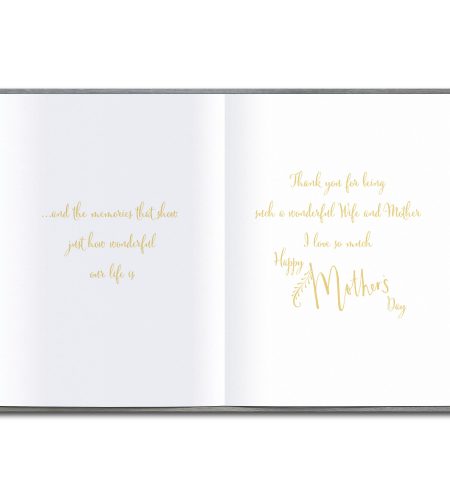 ...and the memories that show
just how wonderful
our life is
Thank you for being
such a wonderful Wife and Mother
I love so much
Happy
Mother's
Day